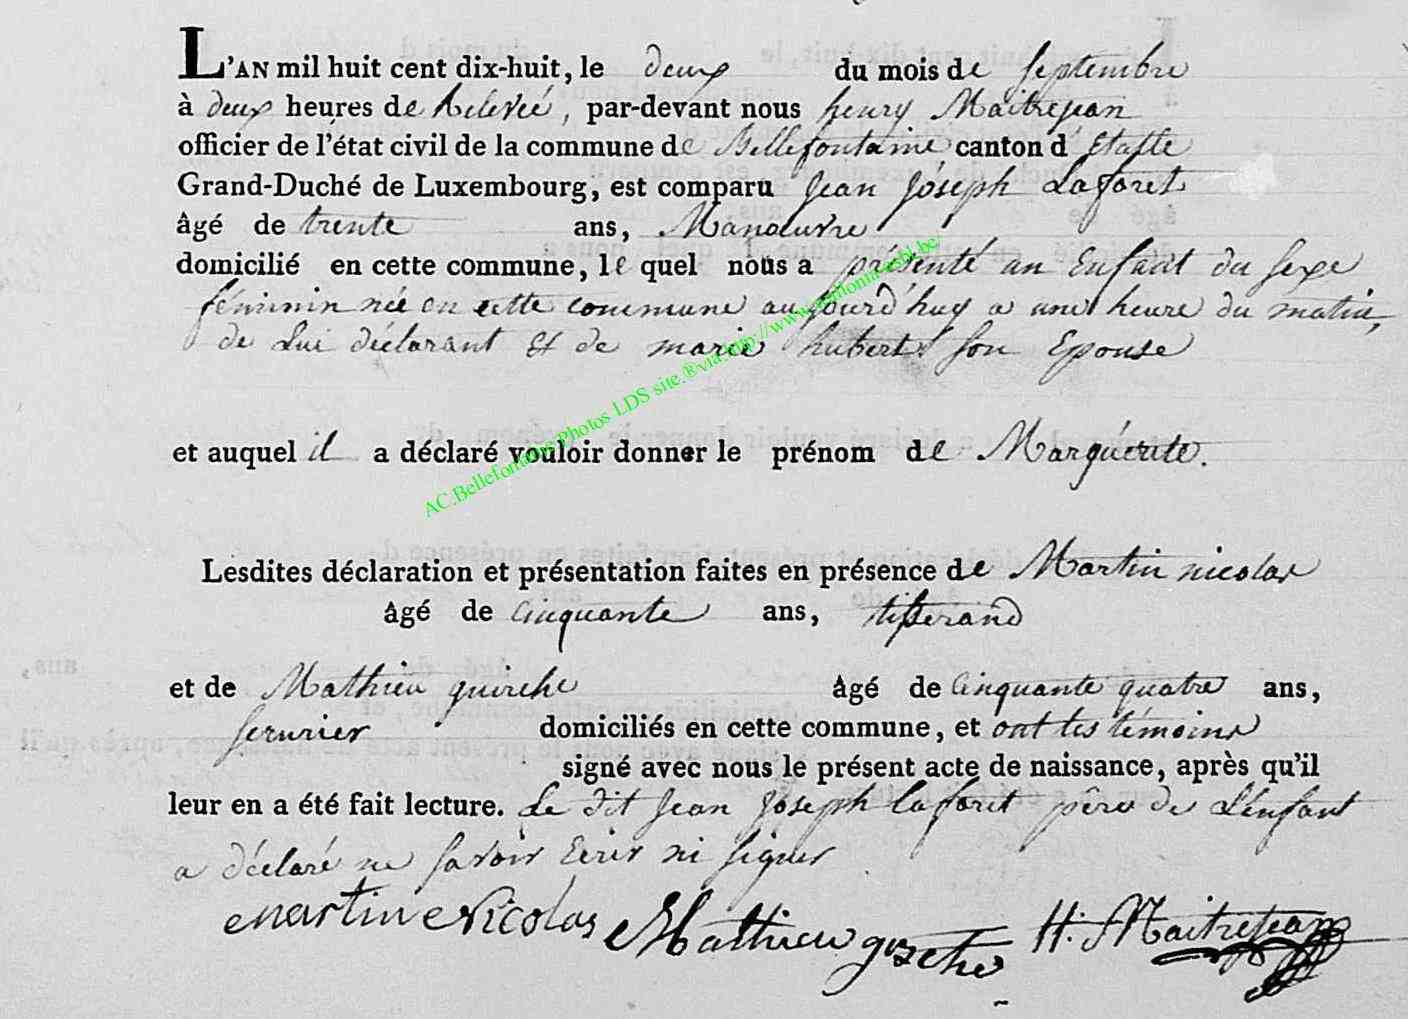 L'AN mil huit cent dix-huit, le deux du mois de septembre
à deux heures de Relevée, par-devant nous henry Maitrejean
officier de l'état civil de la commune de Bellefontaine canton d'Etalle
Grand-Duché de Luxembourg, est comparu Jean Jóseph Laforet
âgé de trente ans, Manœuvre
domicilié en cette commune, le quel nous a présenté un Enfant du sexe
féminin née en cette commune aujourd'huy a une heure du matin,
de Lui déclarant Et de marie hubert son Epouse
et auquel il a déclaré vouloir donner le prénom de Marguérite.
Lesdites déclaration et présentation faites en présence de Martin nicolas
âgé de Cinquante ans, tisserand
et de Mathieu guirche âgé de Cinquante quatre ans,
serurier domiciliés en cette commune, et ont les témoins
signé avec nous le présent acte de naissance, après qu'il
leur en a été fait lecture. Le dit Jean Jóseph laforet père de L'enfant
a déclaré ne savoir Ecrir ni signer
martin Nicolas Mathieu H. Maitrejean
AC.Bellefontaine.Photos LDS site.®via.http://www.